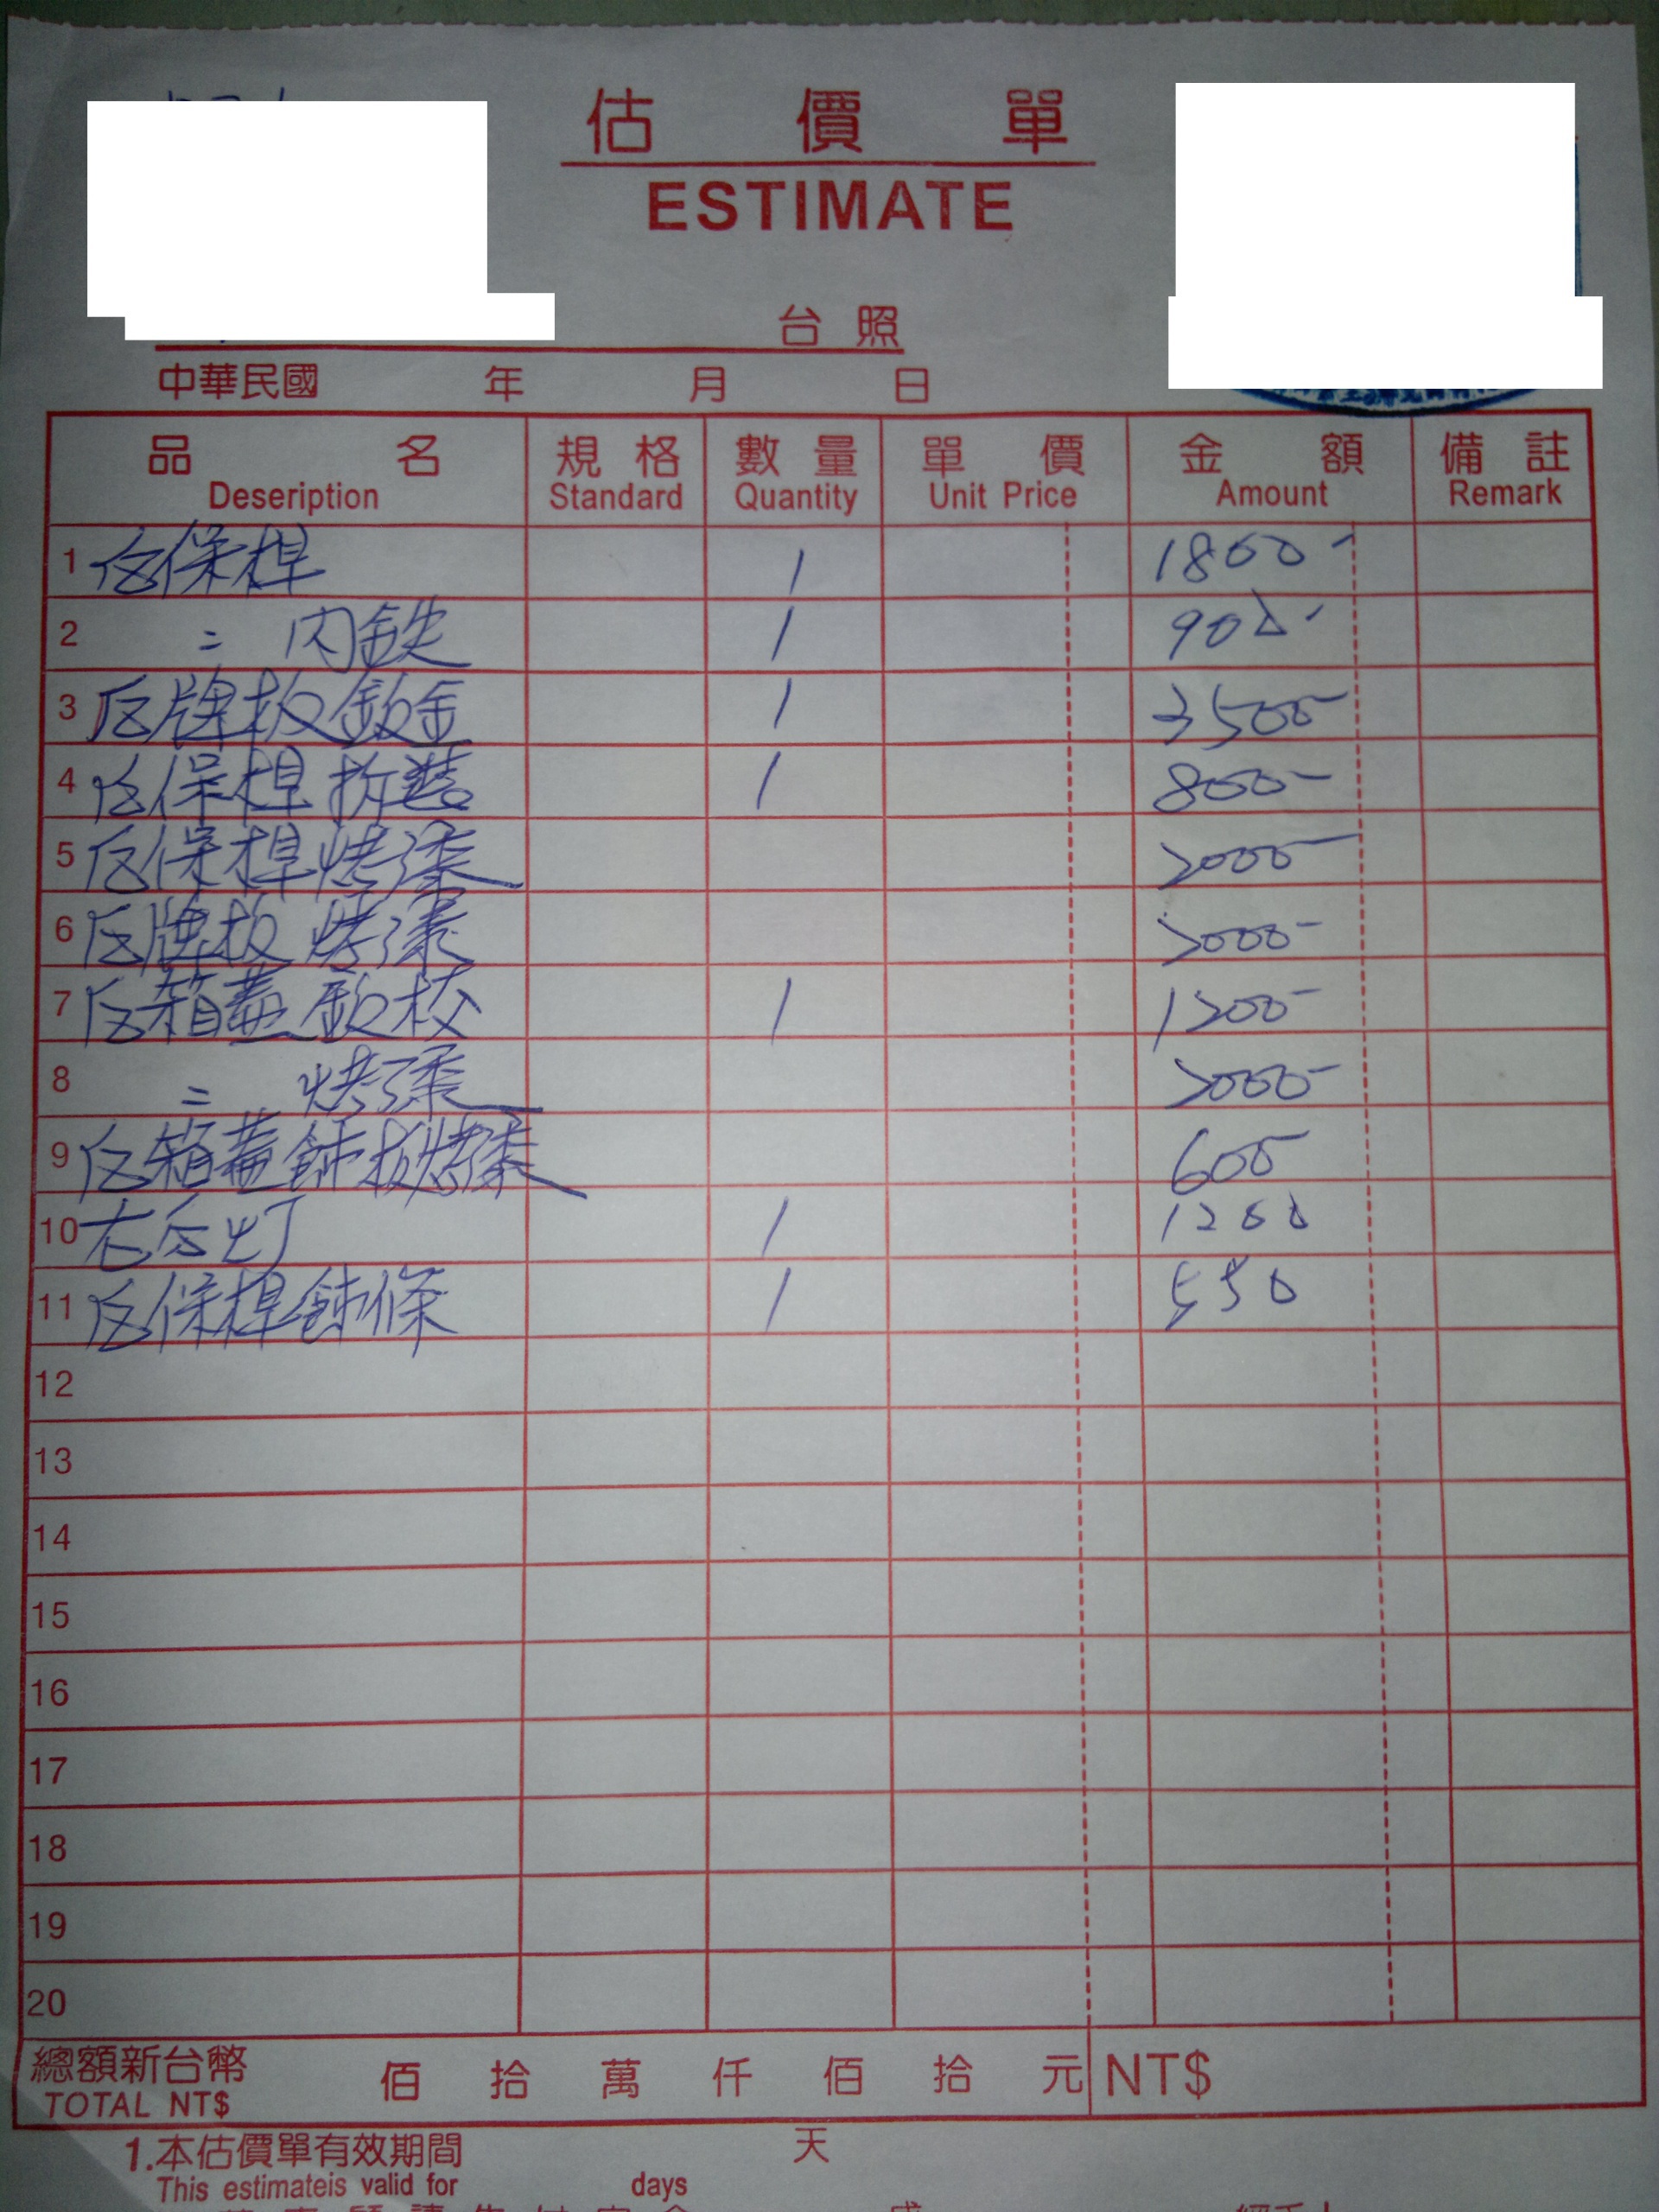 估價單
ESTIMATE
台照
中華民國 年 月 日
品名 規格 數量 單價 金額 備註
Deseription Standard Quantity Unit Price Amount Remark
1 后保桿 1 1800-
2 〃 内鉄 1 900-
3 后牌板鈑金 1 3500-
4 后保桿拆裝 1 800-
5 后保桿烤漆 2000-
6 后牌板烤漆 2000-
7 后箱蓋鈑校 1 1200-
8 〃 烤漆 2000-
9 后箱蓋飾板烤漆 600
10 右后灯 1 1200
11 后保桿飾條 1 550
12
13
14
15
16
17
18
19
20
總額新台幣 佰拾萬仟佰拾元 NT$
TOTAL NT$
1.本估價單有效期間 天
This estimateis valid for days